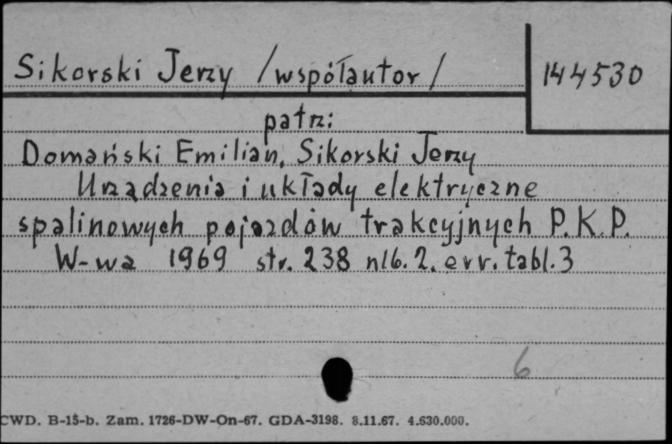 Sikorski Jerzy /współautor/
144530
patrz:
Domański Emilian, Sikorski Jerzy
Urządzenia i układy elektryczne
spalinowych pojazdów trakcyjnych P.K.P.
W-wa 1969 str. 238 nlb. 2. err. tabl. 3
6
CWD. B-15-b. Zam. 1726-DW-On-67. GDA-3198. 8.11.67. 4.630.000.